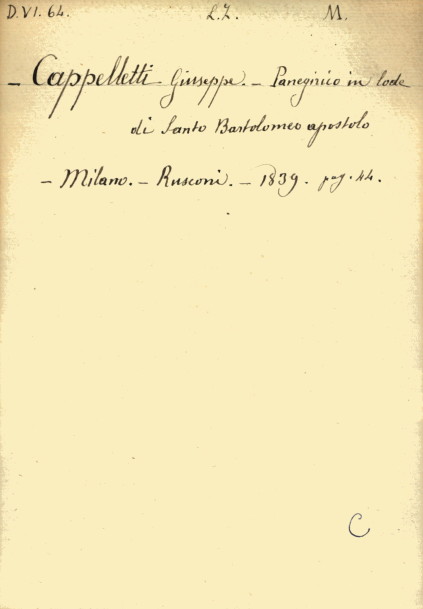 D.VI. 64. L.Z. M.
– Cappelletti Giuseppe. – Panegirico in lode
di Santo Bartolomeo apostolo
– Milano. – Rusconi. – 1839. pag. 44.
C